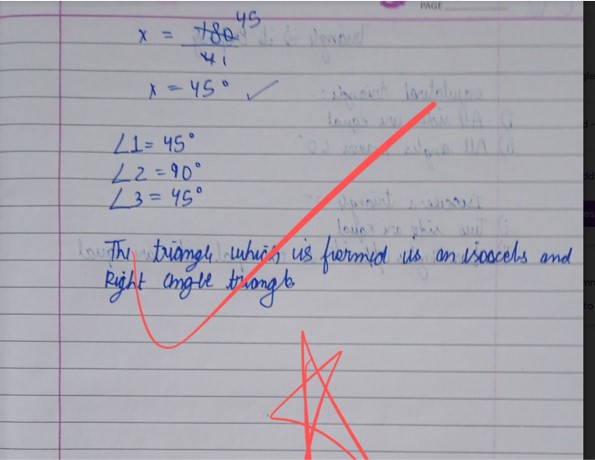 PAGE
x = 180 45
4 1
x = 45°
∠1 = 45°
∠2 = 90°
∠3 = 45°
The triangle which is formed is an isoscels and
Right angle triangle